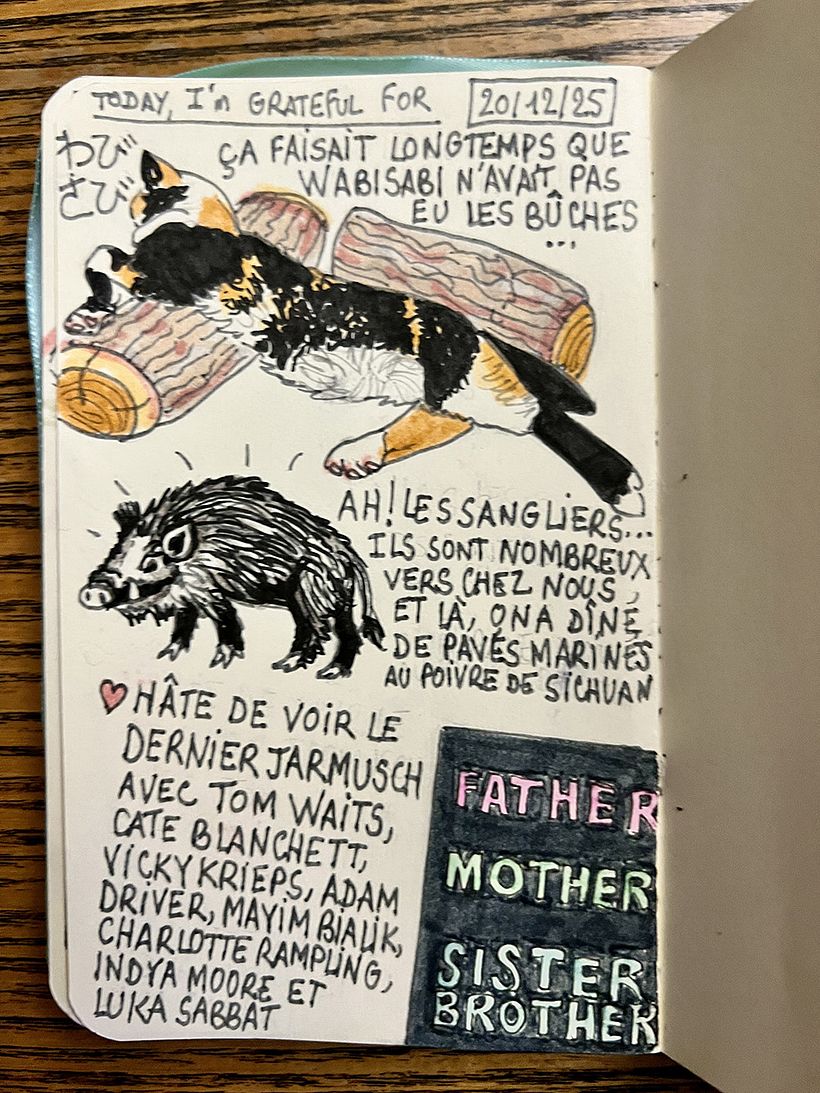 TODAY, I'm GRATEFUL FOR
20/12/25
わび
さび
ÇA FAISAIT LONGTEMPS QUE
WABISABI N'AVAIT PAS
EU LES BÛCHES
...
AH! LES SANGLIERS...
ILS SONT NOMBREUX
VERS CHEZ NOUS,
ET LÀ, ON A DÎNÉ
DE PAVÉS MARINÉS
AU POIVRE DE SICHUAN
HÂTE DE VOIR LE
DERNIER JARMUSCH
AVEC TOM WAITS,
CATE BLANCHETT,
VICKY KRIEPS, ADAM
DRIVER, MAYIM BIALIK,
CHARLOTTE RAMPLING,
INDYA MOORE ET
LUKA SABBAT
FATHER
MOTHER
SISTER
BROTHER